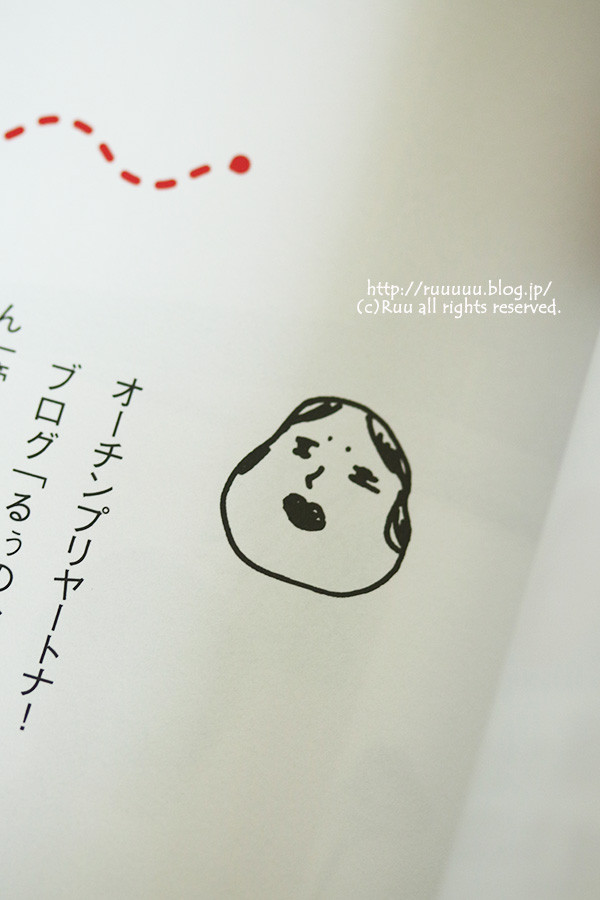 http://ruuuuu.blog.jp/
(c)Ruu all rights reserved.
オーチンプリヤートナ!
ブログ「るぅの